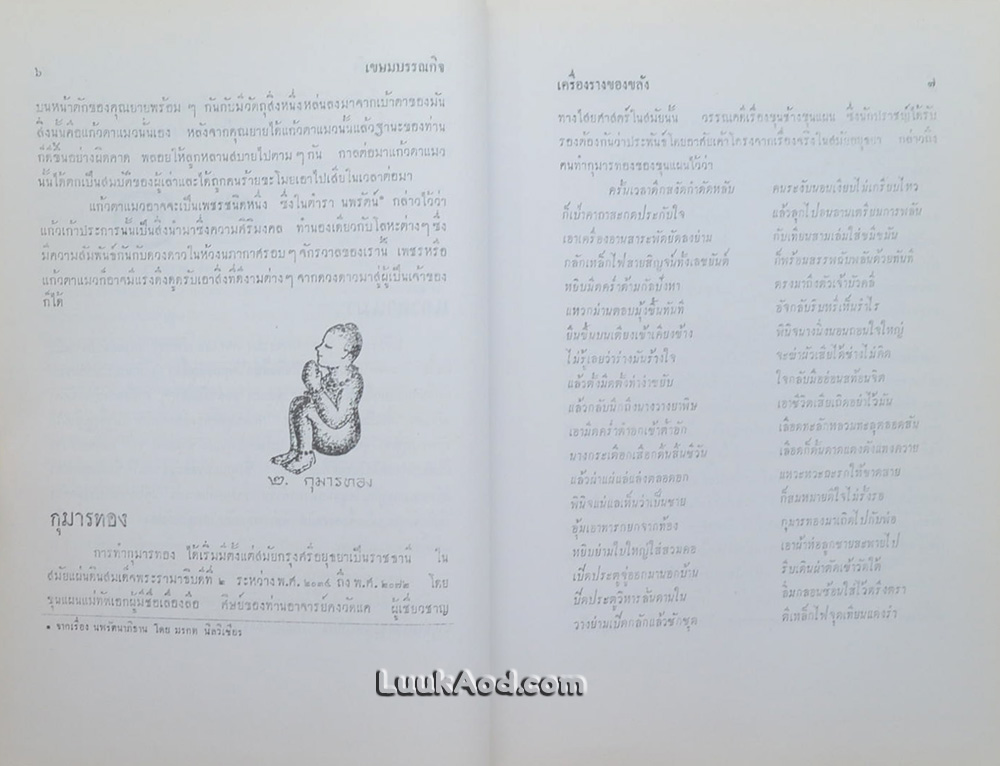 ๖ เขษมบรรณกิจ
บนหน้าตักของคุณยายพร้อม ๆ กันกับมีวัตถุสิ่งหนึ่งหล่นลงมาจากเบ้าตาของมัน
สิ่งนั้นคือแก้วตาแมวนั้นเอง หลังจากคุณยายได้แก้วตาแมวนั้นแล้วฐานะของท่าน
ก็ดีขึ้นอย่างผิดคาด พลอยให้ลูกหลานสบายไปตาม ๆ กัน กาลต่อมาแก้วตาแมว
นั้นได้ตกเป็นสมบัติของผู้เล่าและได้ถูกคนร้ายขะโมยเอาไปเสียในเวลาต่อมา
แก้วตาแมวอาจจะเป็นเพชรชนิดหนึ่ง ซึ่งในตำรา นพรัตน์* กล่าวไว้ว่า
แก้วเก้าประการนั้นเป็นสิ่งนำมาซึ่งความศิริมงคล ทำนองเดียวกับโลหะต่างๆ ซึ่ง
มีความสัมพันธ์กันกับดวงดาวในห้วงนภากาศรอบ ๆ จักรวาลของเรานี้ เพชรหรือ
แก้วตาแมวก็อาจมีแรงดึงดูดรับเอาสิ่งที่ดีงามต่าง ๆ จากดวงดาวมาสู่ผู้เป็นเจ้าของ
ก็ได้
๒. กุมารทอง
กุมารทอง
การทำกุมารทอง ได้เริ่มมีตั้งแต่สมัยกรุงศรีอยุธยาเป็นราชธานี ใน
สมัยแผ่นดินสมเด็จพระรามาธิบดีที่ ๒ ระหว่าง พ.ศ. ๒๐๓๔ ถึง พ.ศ. ๒๐๗๒ โดย
ขุนแผนแม่ทัพเอกผู้มีชื่อเลื่องลือ ศิษย์ของท่านอาจารย์คงวัดแค ผู้เชี่ยวชาญ
* จากเรื่อง นพรัตนาภิธาน โดย มรกต นิลวิเชียร
เครื่องรางของขลัง ๗
ทางไสยศาสตร์ในสมัยนั้น วรรณคดีเรื่องขุนช้างขุนแผน ซึ่งนักปราชญ์ได้รับ
รองต้องกันว่าประพันธ์โดยอาศัยเค้าโครงจากเรื่องจริงในสมัยอยุธยา กล่าวถึง
คนทำกุมารทองของขุนแผนไว้ว่า
ครั้นเวลาดึกสงัดกำดัดหลับ คนระงับนอนเงียบไม่เกรียบไหว
ก็เป่าคาถาสะกดประกับใจ แล้วลุกไปจนลานเตรียมการพลัน
เอาเครื่องอานสาระพัดยัดลงย่าม กับเทียนสามเล่มใส่ขมีขมัน
กลักเหล็กไฟสายสิญจน์ทั้งเลขยันต์ ก็พร้อมสรรพฉับพลันด้วยทันที
หยิบมีดคร่ำด้ามกัลปังหา ตรงมาถึงตัวเจ้าบัวคลี่
แหวกม่านตลบมุ้งขึ้นทันที อัจกลับริบหรี่เห็นรำไร
ยืนขึ้นบนเตียงเข้าเคียงข้าง พินิจนางนิ่งนอนถอนใจใหญ่
ไม่รู้เลยว่าร่างมันร้างใจ จะฆ่าผัวเสียได้ช่างไม่คิด
แล้วตั้งมีดตั้งท่าร่าขยับ ใจกลับมืออ่อนสท้อนจิต
แล้วกลับนึกถึงนางวางยาพิษ เอาชีวิตเสียเถิดอย่าไว้มัน
เอามีดคร่ำตำอกเข้าต้ำอัก เลือดทะลักหลวมทะลุตลอดสัน
นางกระเดือกเสือกดิ้นสิ้นชีวัน เลือดก็ดั้นดาดแดงดังแทงควาย
แล้วผ่าแผ่แล่แล่งตลอดอก แหวะหวะฉะรกให้ขาดสาย
พินิจแน่แลเห็นว่าเป็นชาย ก็สมหมายดีใจไม่รั้งรอ
อุ้มเอาทารกยกจากท้อง กุมารทองมาเถิดไปกับพ่อ
หยิบย่ามใบใหญ่ใส่สวมคอ เอาผ้าห่อลูกชายสะพายไป
เปิดประตูจู่ออกมานอกบ้าน รีบเดินผ่าตัดเข้าวัดใต้
ปิดประตูวิหารลั่นดานใน ลิ่มกลอนซ้อนใส่ไว้ตรึงตรา
วางย่ามเปิดกลักแล้วชักชุด ตีเหล็กไฟจุดเทียนแดงร่า
LuukAod.com